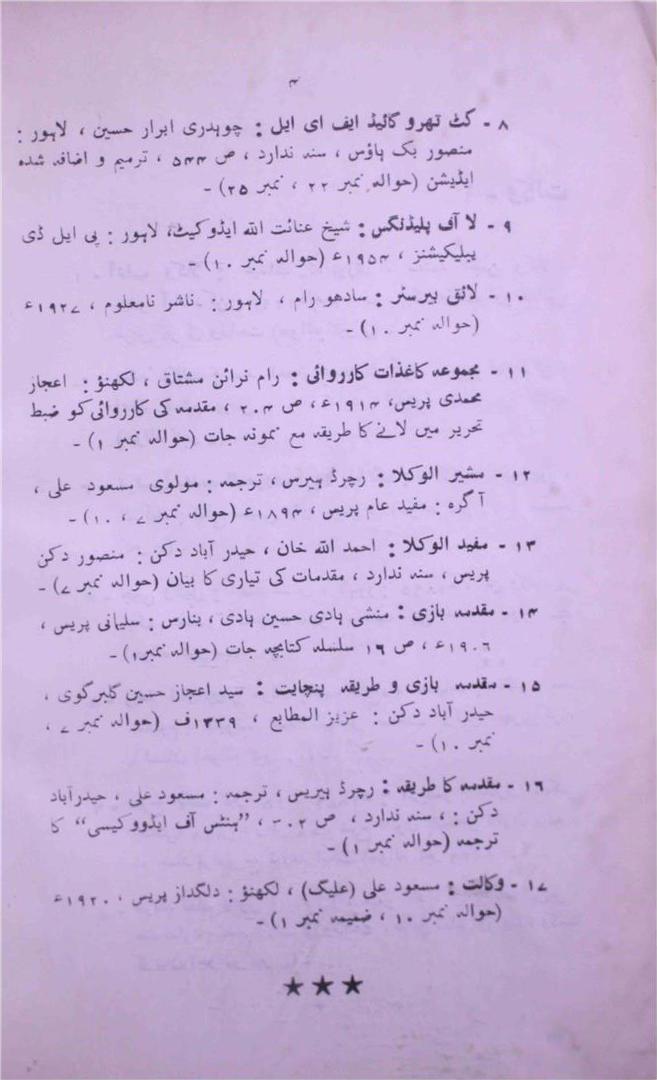 ۴
۸ - کٹ تھرو گائیڈ ایف ای ایل : چوہدری ابرار حسین ، لاہور :
منصور بک ہاؤس ، سنہ ندارد ، ص ۵۴۴ ، ترمیم و اضافہ شدہ
ایڈیشن (حوالہ نمبر ۲۲ ، نمبر ۲۵) -
۹ - لا آف پلیڈنگس : شیخ عنائت اللہ ایڈوکیٹ، لاہور : پی ایل ڈی
پبلیکیشنز ، ۱۹۵۴ء (حوالہ نمبر ۱۰) -
۱۰ - لائق بیرسٹر : سادھو رام ، لاہور : ناشر نامعلوم ، ۱۹۲۷ء
(حوالہ نمبر ۱۰) -
۱۱ - مجموعہ کاغذات کارروائی : رام نرائن مشتاق ، لکھنؤ : اعجاز
محمدی پریس، ۱۹۱۴ء ، ص ۲۰۴ ، مقدمہ کی کارروائی کو ضبط
تحریر میں لانے کا طریقہ مع نمونہ جات (حوالہ نمبر ۱) -
۱۲ - مشیر الوکلا : رچرڈ ہیرس ، ترجمہ : مولوی مسعود علی ،
آگرہ : مفید عام پریس ، ۱۸۹۴ء (حوالہ نمبر ۷ ، ۱۰) -
۱۳ - مفید الوکلا : احمد اللہ خان ، حیدر آباد دکن : منصور دکن
پریس ، سنہ ندارد ، مقدمات کی تیاری کا بیان (حوالہ نمبر ۷) -
۱۴ - مقدمہ بازی : منشی ہادی حسین ہادی ، بنارس : سلیمانی پریس ،
۱۹۰۶ء ، ص ۱۶ سلسلہ کتابچہ جات (حوالہ نمبر۱) -
۱۵ - مقدمہ بازی و طریقہ پنچایت : سید اعجاز حسین گلبرگوی ،
حیدر آباد دکن : عزیز المطابع ، ۱۳۳۹ف (حوالہ نمبر ۷ ،
نمبر ۱۰) -
۱۶ - مقدمہ کا طریقہ : رچرڈ ہیریس ، ترجمہ : مسعود علی ، حیدرآباد
دکن : ، سنہ ندارد ، ص ، ”ہنٹس آف ایڈووکیسی“ کا
ترجمہ (حوالہ نمبر ۱) -
۱۷ - وکالت : مسعود علی (علیگ) ، لکھنؤ : دلگداز پریس ، ۱۹۲۰ء
(حوالہ نمبر ۱۰ ، ضمیمہ نمبر ۱) -
★★★